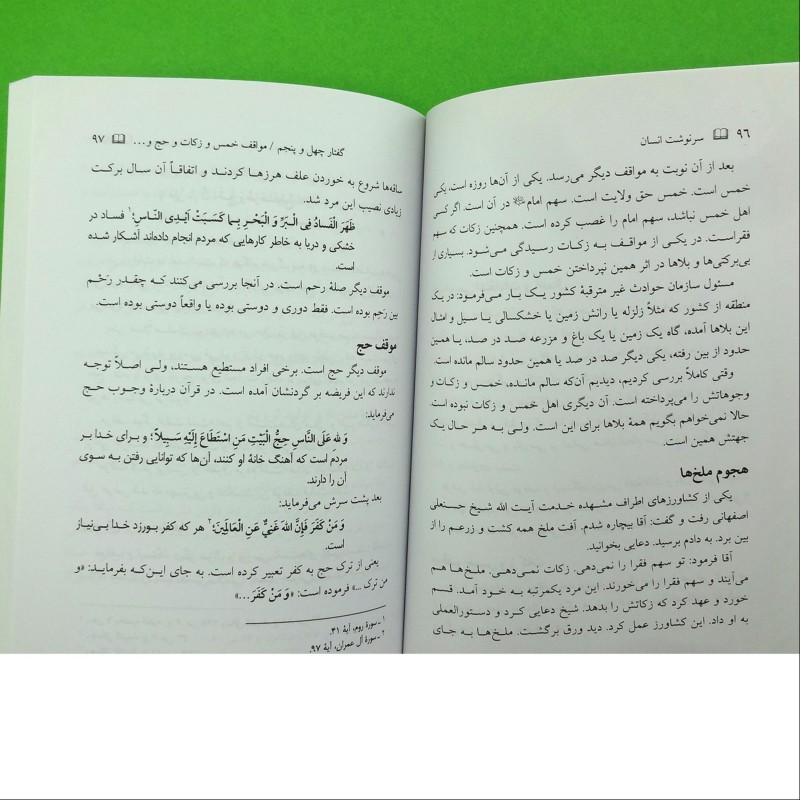 ۹۶ سرنوشت انسان
بعد از آن نوبت به مواقف دیگر می‌رسد. یکی از آن‌ها روزه است، یکی
خمس است. یکی حق ولایت است. سهم امام در آن است. اگر کسی
اهل خمس نباشد، سهم امام را غصب کرده است. همچنین زکات که سهم
فقراست. در یکی از مواقف به زکات رسیدگی می‌شود. بسیاری از
بی‌برکتی‌ها و بلاها در اثر همین نپرداختن خمس و زکات است.
مسئول سازمان حوادث غیر مترقبهٔ کشور یک بار می‌فرمود: در یک
منطقه از کشور که مثلاً زلزله یا رانش زمین یا خشکسالی یا سیل و امثال
این بلاها آمده، گاه یک زمین یا یک باغ و مزرعه صد در صد، یا همین
حدود از بین رفته، یکی دیگر صد در صد یا همین حدود سالم مانده است.
وقتی کاملاً بررسی کردیم، دیدیم آن‌که سالم مانده، خمس و زکات و
وجوهاتش را می‌پرداخته است. آن دیگری اهل خمس و زکات نبوده است.
حالا نمی‌خواهم بگویم همهٔ بلاها برای این است. ولی به هر حال یک
جهتش همین است.
هجوم ملخ‌ها
یکی از کشاورزهای اطراف مشهد خدمت آیت الله شیخ حسنعلی
اصفهانی رفت و گفت: آقا بیچاره شدم. آفت ملخ همه کشت و زرعم را از
بین برد. به دادم برسید. دعایی بخوانید.
آقا فرمود: تو سهم فقرا را نمی‌دهی. زکات نمی‌دهی. ملخ‌ها هم
می‌آیند و سهم فقرا را می‌خورند. این مرد یکمرتبه به خود آمد. قسم
خورد و عهد کرد که زکاتش را بدهد. شیخ دعایی کرد و دستورالعملی
به او داد. این کشاورز عمل کرد. دید ورق برگشت. ملخ‌ها به جای
گفتار چهل و پنجم / مواقف خمس و زکات و حج و... ۹۷
ساقه‌ها شروع به خوردن علف هرزها کردند و اتفاقاً آن سال برکت
زیادی نصیب این مرد شد.
ظَهَرَ الْفَسادُ فِی الْبَرِّ وَ الْبَحْرِ بِما کَسَبَتْ أَیْدِی النَّاسِ؛ ۱ فساد در
خشکی و دریا به خاطر کارهایی که مردم انجام داده‌اند آشکار شده
است.
موقف دیگر صلهٔ رحم است. در آنجا بررسی می‌کنند که چقدر رَحْم
بین رَحِم بوده است. فقط دوری و دوستی بوده یا واقعاً دوستی بوده است.
موقف حج
موقف دیگر حج است. برخی افراد مستطیع هستند، ولی اصلاً توجه
ندارند که این فریضه بر گردنشان آمده است. در قرآن دربارهٔ وجوب حج
می‌فرماید:
وَ لله عَلَی النَّاسِ حِجُّ الْبَیْتِ مَنِ اسْتَطاعَ إِلَیْهِ سَبِیلاً؛ و برای خدا بر
مردم است که آهنگ خانهٔ او کنند، آن‌ها که توانایی رفتن به سوی
آن را دارند.
بعد پشت سرش می‌فرماید:
وَ مَنْ کَفَرَ فَإِنَّ اللهَ غَنِیٌّ عَنِ الْعالَمِینَ؛ ۲ هر که کفر بورزد خدا بی‌نیاز
است.
یعنی از ترک حج به کفر تعبیر کرده است. به جای این‌که بفرماید: «و
من ترک ...» فرموده است: «وَ مَنْ کَفَرَ...»
۱ ـ سورهٔ روم، آیهٔ ۴۱.
۲ ـ سورهٔ آل عمران، آیهٔ ۹۷.